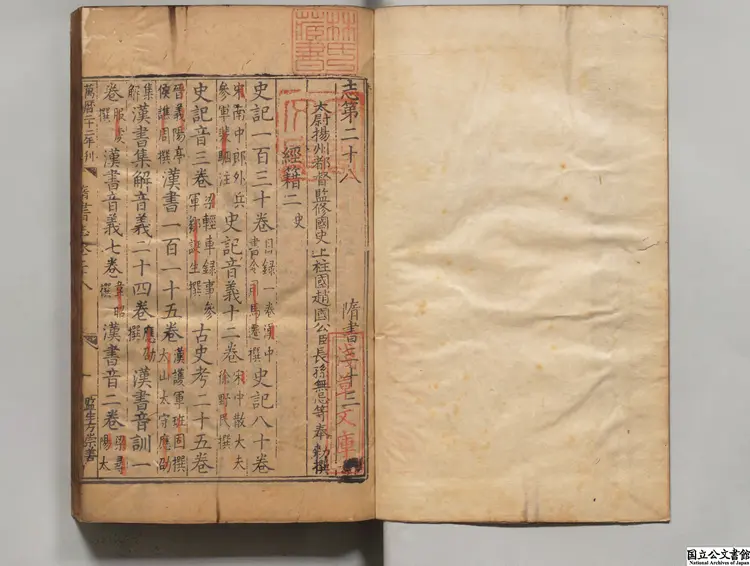 林氏藏書
志第二十八 隋書三十三
太尉揚州都督監修國史上柱國趙國公臣長孫無忌等奉 勑撰
經籍二 史
史記一百三十卷 目録一卷漢中書令司馬遷撰 史記八十卷 宋
南中郎外兵參軍裴駰注 史記音義十二卷 宋中散大夫徐野民撰
史記音三卷 梁輕車録事參軍鄒誕生撰 古史考二十五卷
晉義陽亭侯譙周撰 漢書一百一十五卷 漢護軍班固撰太山太守應劭
集解 漢書集解音義二十四卷 應劭撰 漢書音訓一
卷 服虔撰 漢書音義七卷 韋昭撰 漢書音二卷 梁尋陽太
萬曆二十二年刊 隋書志卷二十八 一 監生方崇書
淺草文庫
国立公文書館
National Archives of Japan